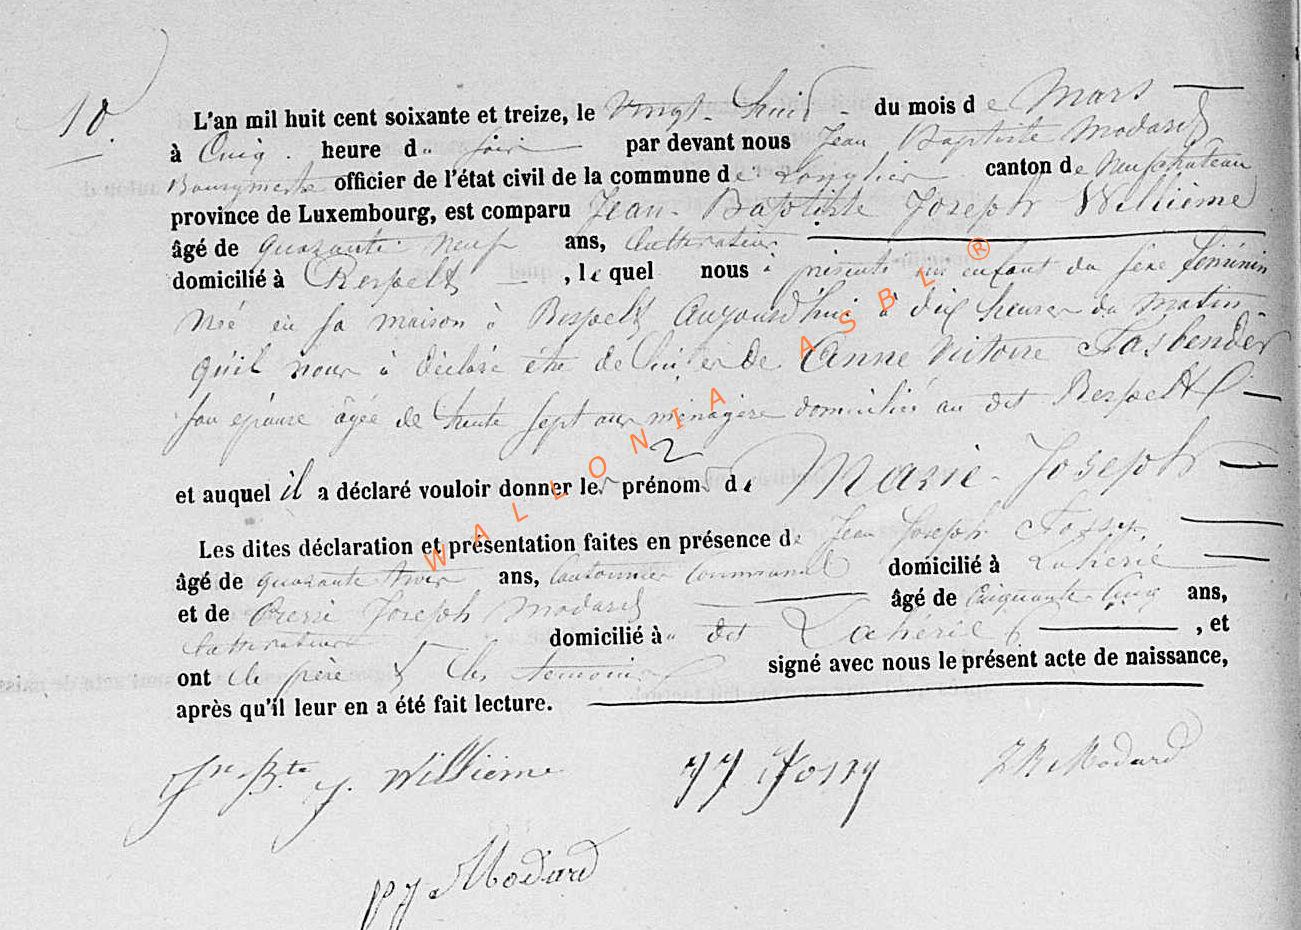 10.
L'an mil huit cent soixante et treize, le Vingt-huit du mois de Mars
à Cinq heure du Soir par devant nous Jean Baptiste Modard
Bourgmestre officier de l'état civil de la commune de Longlier canton de Neufchateau
province de Luxembourg, est comparu Jean-Baptiste Joseph Willième
âgé de quarante neuf ans, Cultivateur
domicilié à Respelt, le quel nous à présenté un enfant du sexe féminin
Née en sa maison à Respelt Aujourd'hui à dix heures du matin
qu'il nous à déclaré être de lui et de Anne Victoire Fasbender
son épouse âgée de trente sept ans ménagère domiciliée au dit Respelt
2
et auquel il a déclaré vouloir donner les prénoms de Marie-Joseph
Les dites déclaration et présentation faites en présence de Jean Joseph Fossy
âgé de quarante trois ans, Cantonnier Communal domicilié à Lahérie
et de Joseph Modard âgé de Cinquante Cinq ans,
Cultivateur domicilié à dit Lahérie, et
ont le père & les temoins signé avec nous le présent acte de naissance,
après qu'il leur en a été fait lecture.
Jn Bte J. Willième JJ Fossy JB Modard
PJ Modard
WALLONIA ASBL ®